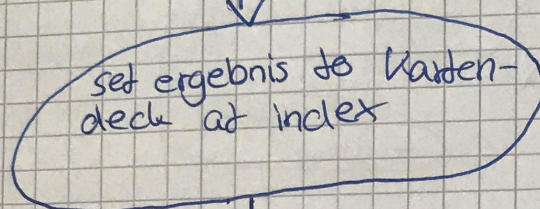 set ergebnis to Karten-
deck at index